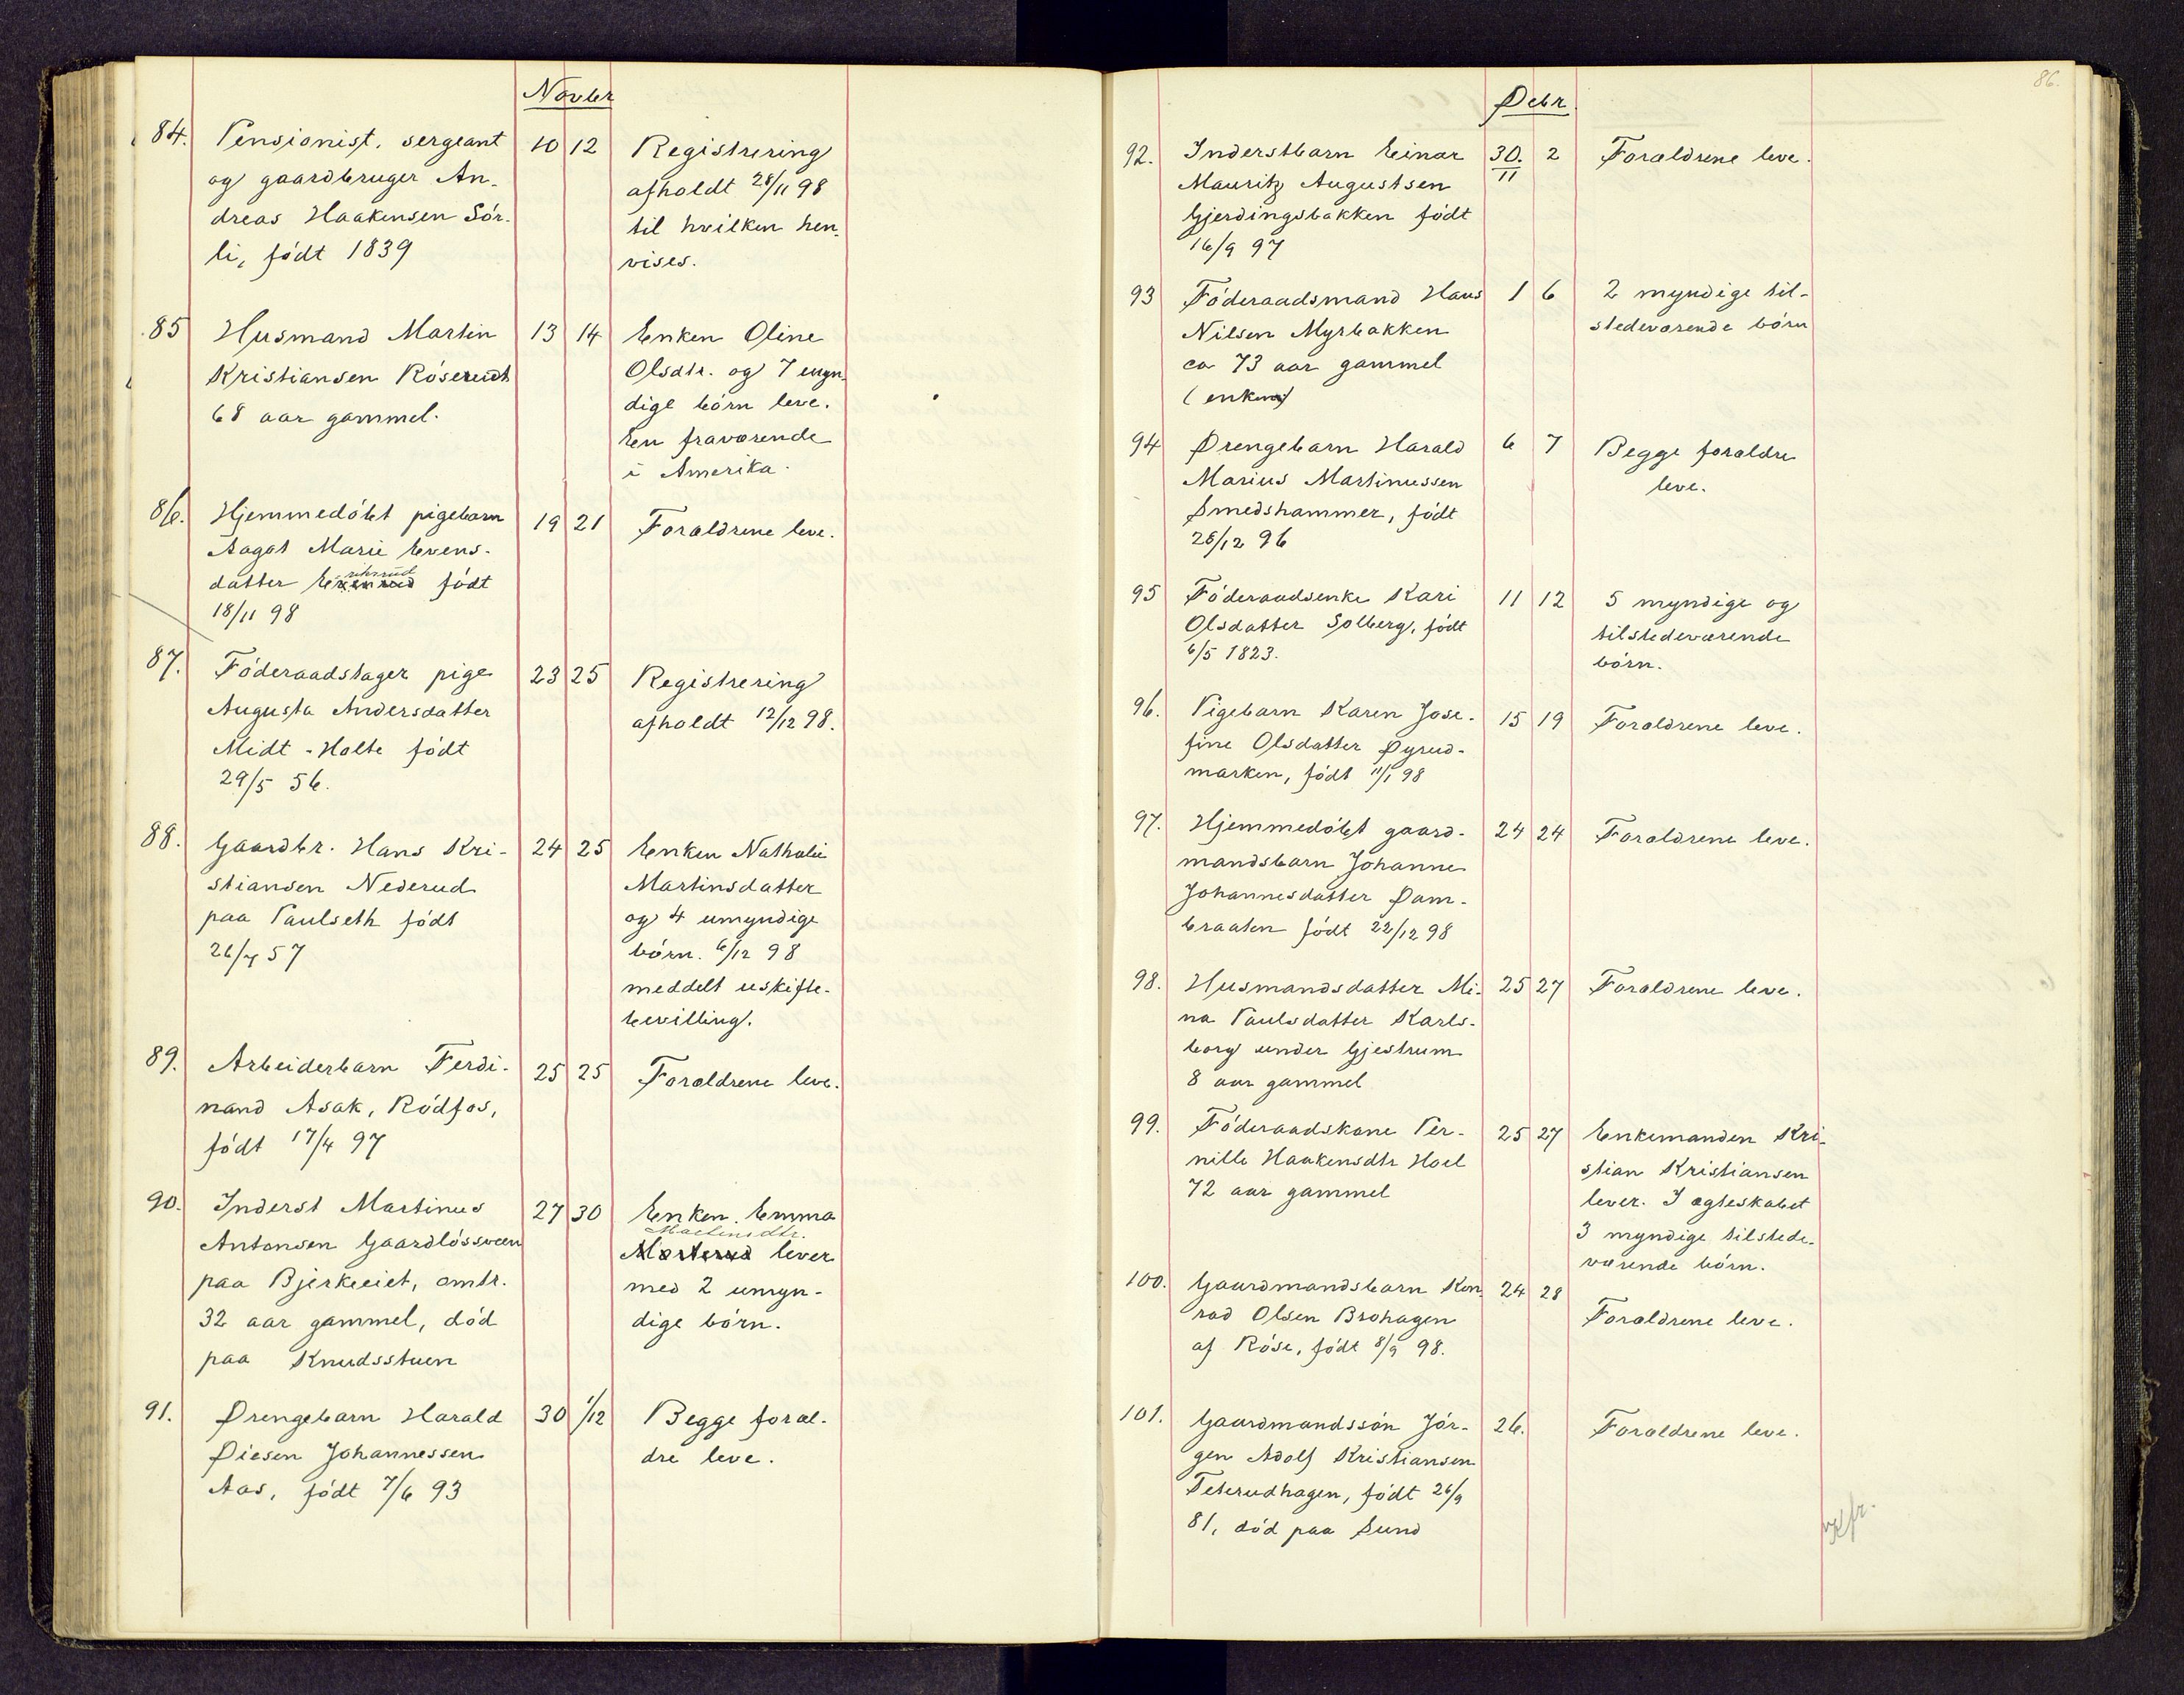 Novbr
84. Pensionist, sergeant 10 12 Registrering
og gaardbruger An- afholdt 28/11 98
dreas Haakensen Sör- til hvilken hen-
li, födt 1839 vises.
85 Husmand Martin 13 14 Enken Oline
Kristiansen Olsdtr. og 7 myn-
68 aar gammel. dige börn leve.
En fraværende
i Amerika.
86. Hjemmedöbt pigebarn 19 21 Forældrene leve.
Aagot Marie Evens-
datter födt
18/11 98
87. Föderaadstager pige 23 25 Registrering
Augusta Andersdatter afholdt 12/12 98.
Midt-Holte födt
29/5 56.
88. Gaardbr. Hans Kri- 24 25 Enken Nathalie
stiansen Nederud Martinsdatter
paa Paulseth födt og 4 umyndige
26/7 57 börn. 6/12 98
meddelt uskifte-
bevilling.
89. Arbeiderbarn Ferdi- 25 25 Forældrene leve.
nand Asak, Rödfos,
födt 17/4 97
90. Inderst Martinus 27 30 Enken Emma
Antonsen Gaardlössveen Martinsdtr. lever
paa Bjerkeeiet, omtr. med 2 umyn-
32 aar gammel, död dige börn.
paa Knudsstuen
91. Drengebarn Harald 30 1/12 Begge foræl-
Diesen Johannessen dre leve.
Aas, födt 7/6 93
86.
Debr
92. Inderstbarn Einar 30./11 2 Forældrene leve.
Mauritz Augustsen
Gjerdingsbakken födt
16/9 97
93 Föderaadsmand Hans 1 6 2 myndige til-
Nilsen Myrbakken stedeværende börn
ca 73 aar gammel
(enkem)
94 Drengebarn Harald 6 7 Begge forældre
Marius Martinussen leve.
Smedshammer, födt
28/12 96
95 Föderaadsenke Kari 11 12 5 myndige og
Olsdatter Solberg, födt tilstedeværende
6/5 1823. börn.
96. Pigebarn Karen Jose- 15 19 Forældrene leve.
fine Olsdatter Dyrud-
marken, födt 11/1 98
97. Hjemmedöbt gaard- 24 24 Forældrene leve.
mandsbarn Johanne
Johannesdatter Dam-
braaten födt 22/12 98
98. Husmandsdatter Mi- 25 27 Forældrene leve.
na Paulsdatter Karls-
borg under Gjestrum
8 aar gammel
99. Föderaadskone Per- 25 27 Enkemanden Kri-
nille Haakensdtr Hoel stian Kristiansen
72 aar gammel lever. I ægteskabet
3 myndige tilstede-
værende börn.
100. Gaardmandsbarn Kon- 24 28
rad Olsen Brohagen Forældrene leve.
af Röse, födt 8/9 98.
101. Gaardmandssön Jör- 26. Forældrene leve.
gen Adolf Kristiansen
Teterudhagen, födt 26/9
81, död paa Sund